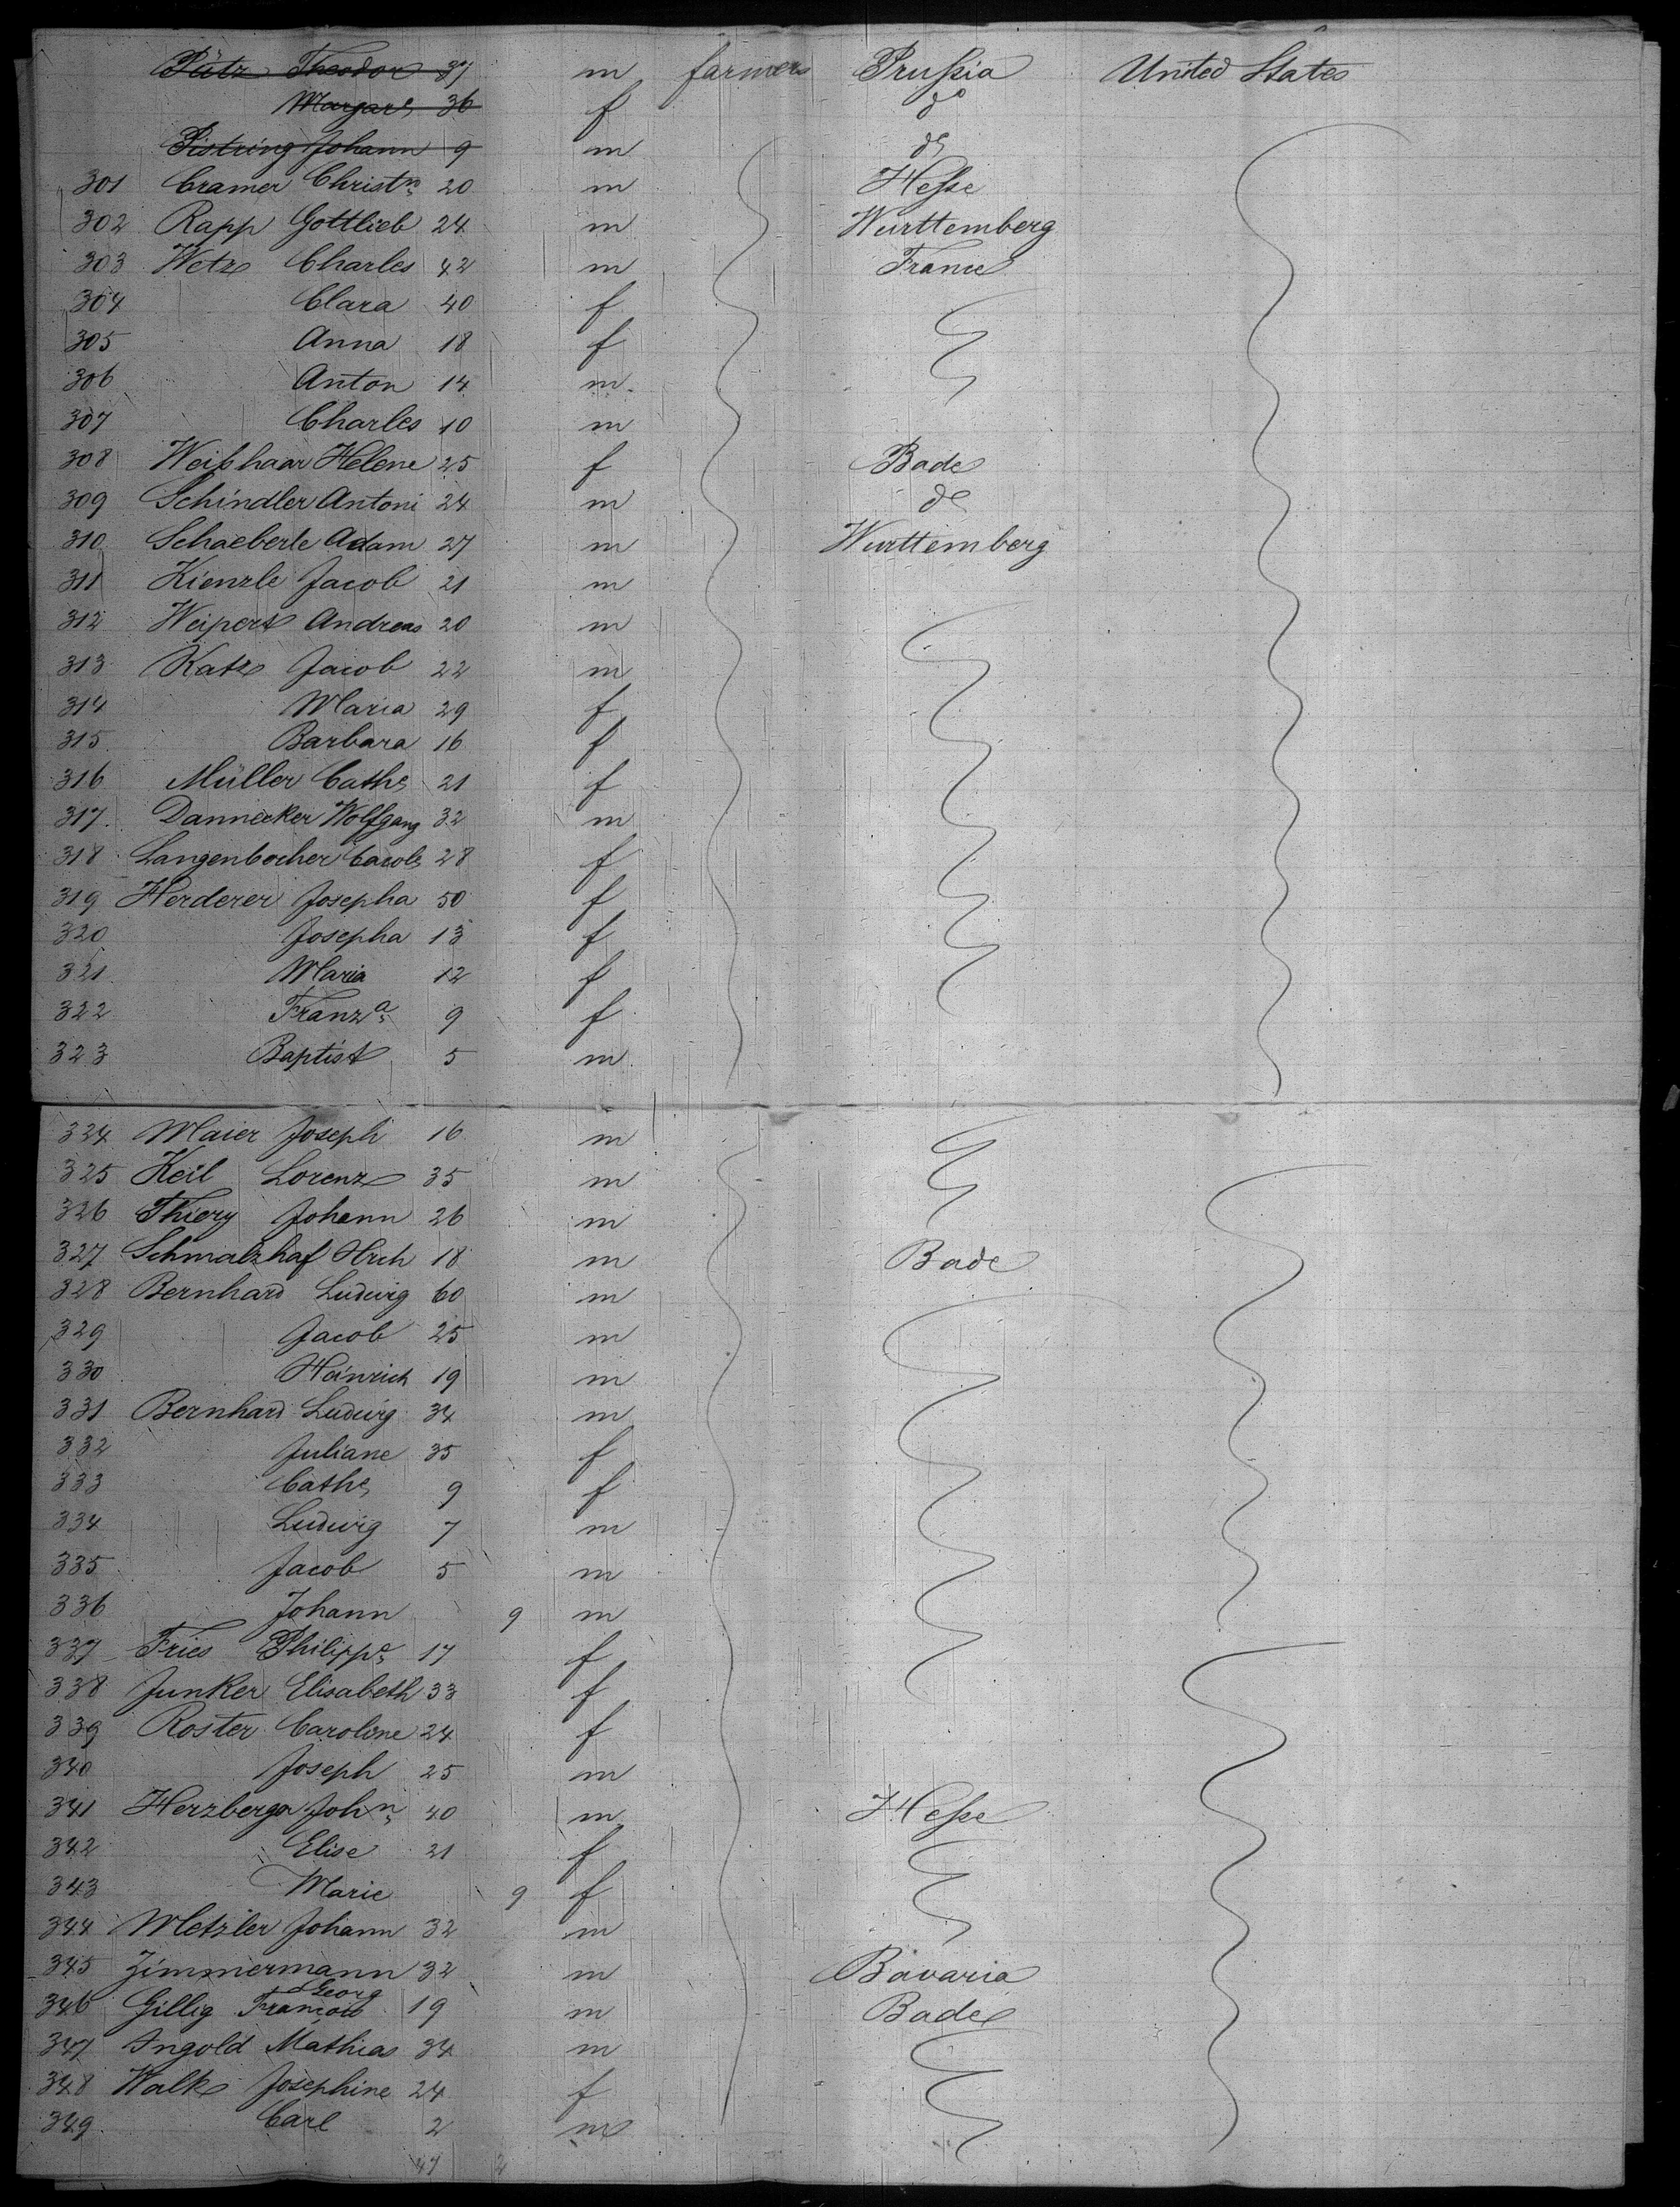 Pütz Theodor 37 m farmers Prussia United States
Margarᵉ 36 f dᵒ
Pistring Johann 9 m dᵒ
301 Cramer Christⁿ 20 m Hesse
302 Rapp Gottlieb 24 m Wurttemberg
303 Wetz Charles 42 m France
304 Clara 40 f
305 Anna 18 f
306 Anton 14 m
307 Charles 10 m
308 Weißhaar Helene 25 f Bade
309 Schindler Antoni 24 m dᵒ
310 Schaeberle Adam 27 m Wurttemberg
311 Kienzle Jacob 21 m
312 Weipert Andreas 20 m
313 Katz Jacob 22 m
314 Maria 29 f
315 Barbara 16 f
316 Müller Cathᵉ 21 f
317 Dannecker Wolfgang 32 m
318 Langenbacher Carolᵉ 28 f
319 Herderer Josepha 50 f
320 Josepha 13 f
321 Maria 12 f
322 Franzᵃ 9 f
323 Baptist 5 m
324 Maier Joseph 16 m
325 Keil Lorenz 35 m
326 Thiery Johann 26 m
327 Schmalzhaf Hrch 18 m Bade
328 Bernhard Ludwig 60 m
329 Jacob 25 m
330 Heinrich 19 m
331 Bernhard Ludwig 34 m
332 Juliane 35 f
333 Cathᵉ 9 f
334 Ludwig 7 m
335 Jacob 5 m
336 Johann 9 m
337 Fries Philippᵉ 17 f
338 Junker Elisabeth 33 f
339 Roster Caroline 24 f
340 Joseph 25 m
341 Herzberger Johⁿ 40 m Hesse
342 Elise 21 f
343 Marie 9 f
344 Metzler Johann 32 m
345 Zimmermann Georg 32 m Bavaria
346 Gillig François 19 m Bade
347 Ingold Mathias 34 m
348 Walk Josephine 24 f
349 Carl 2 m
47 2